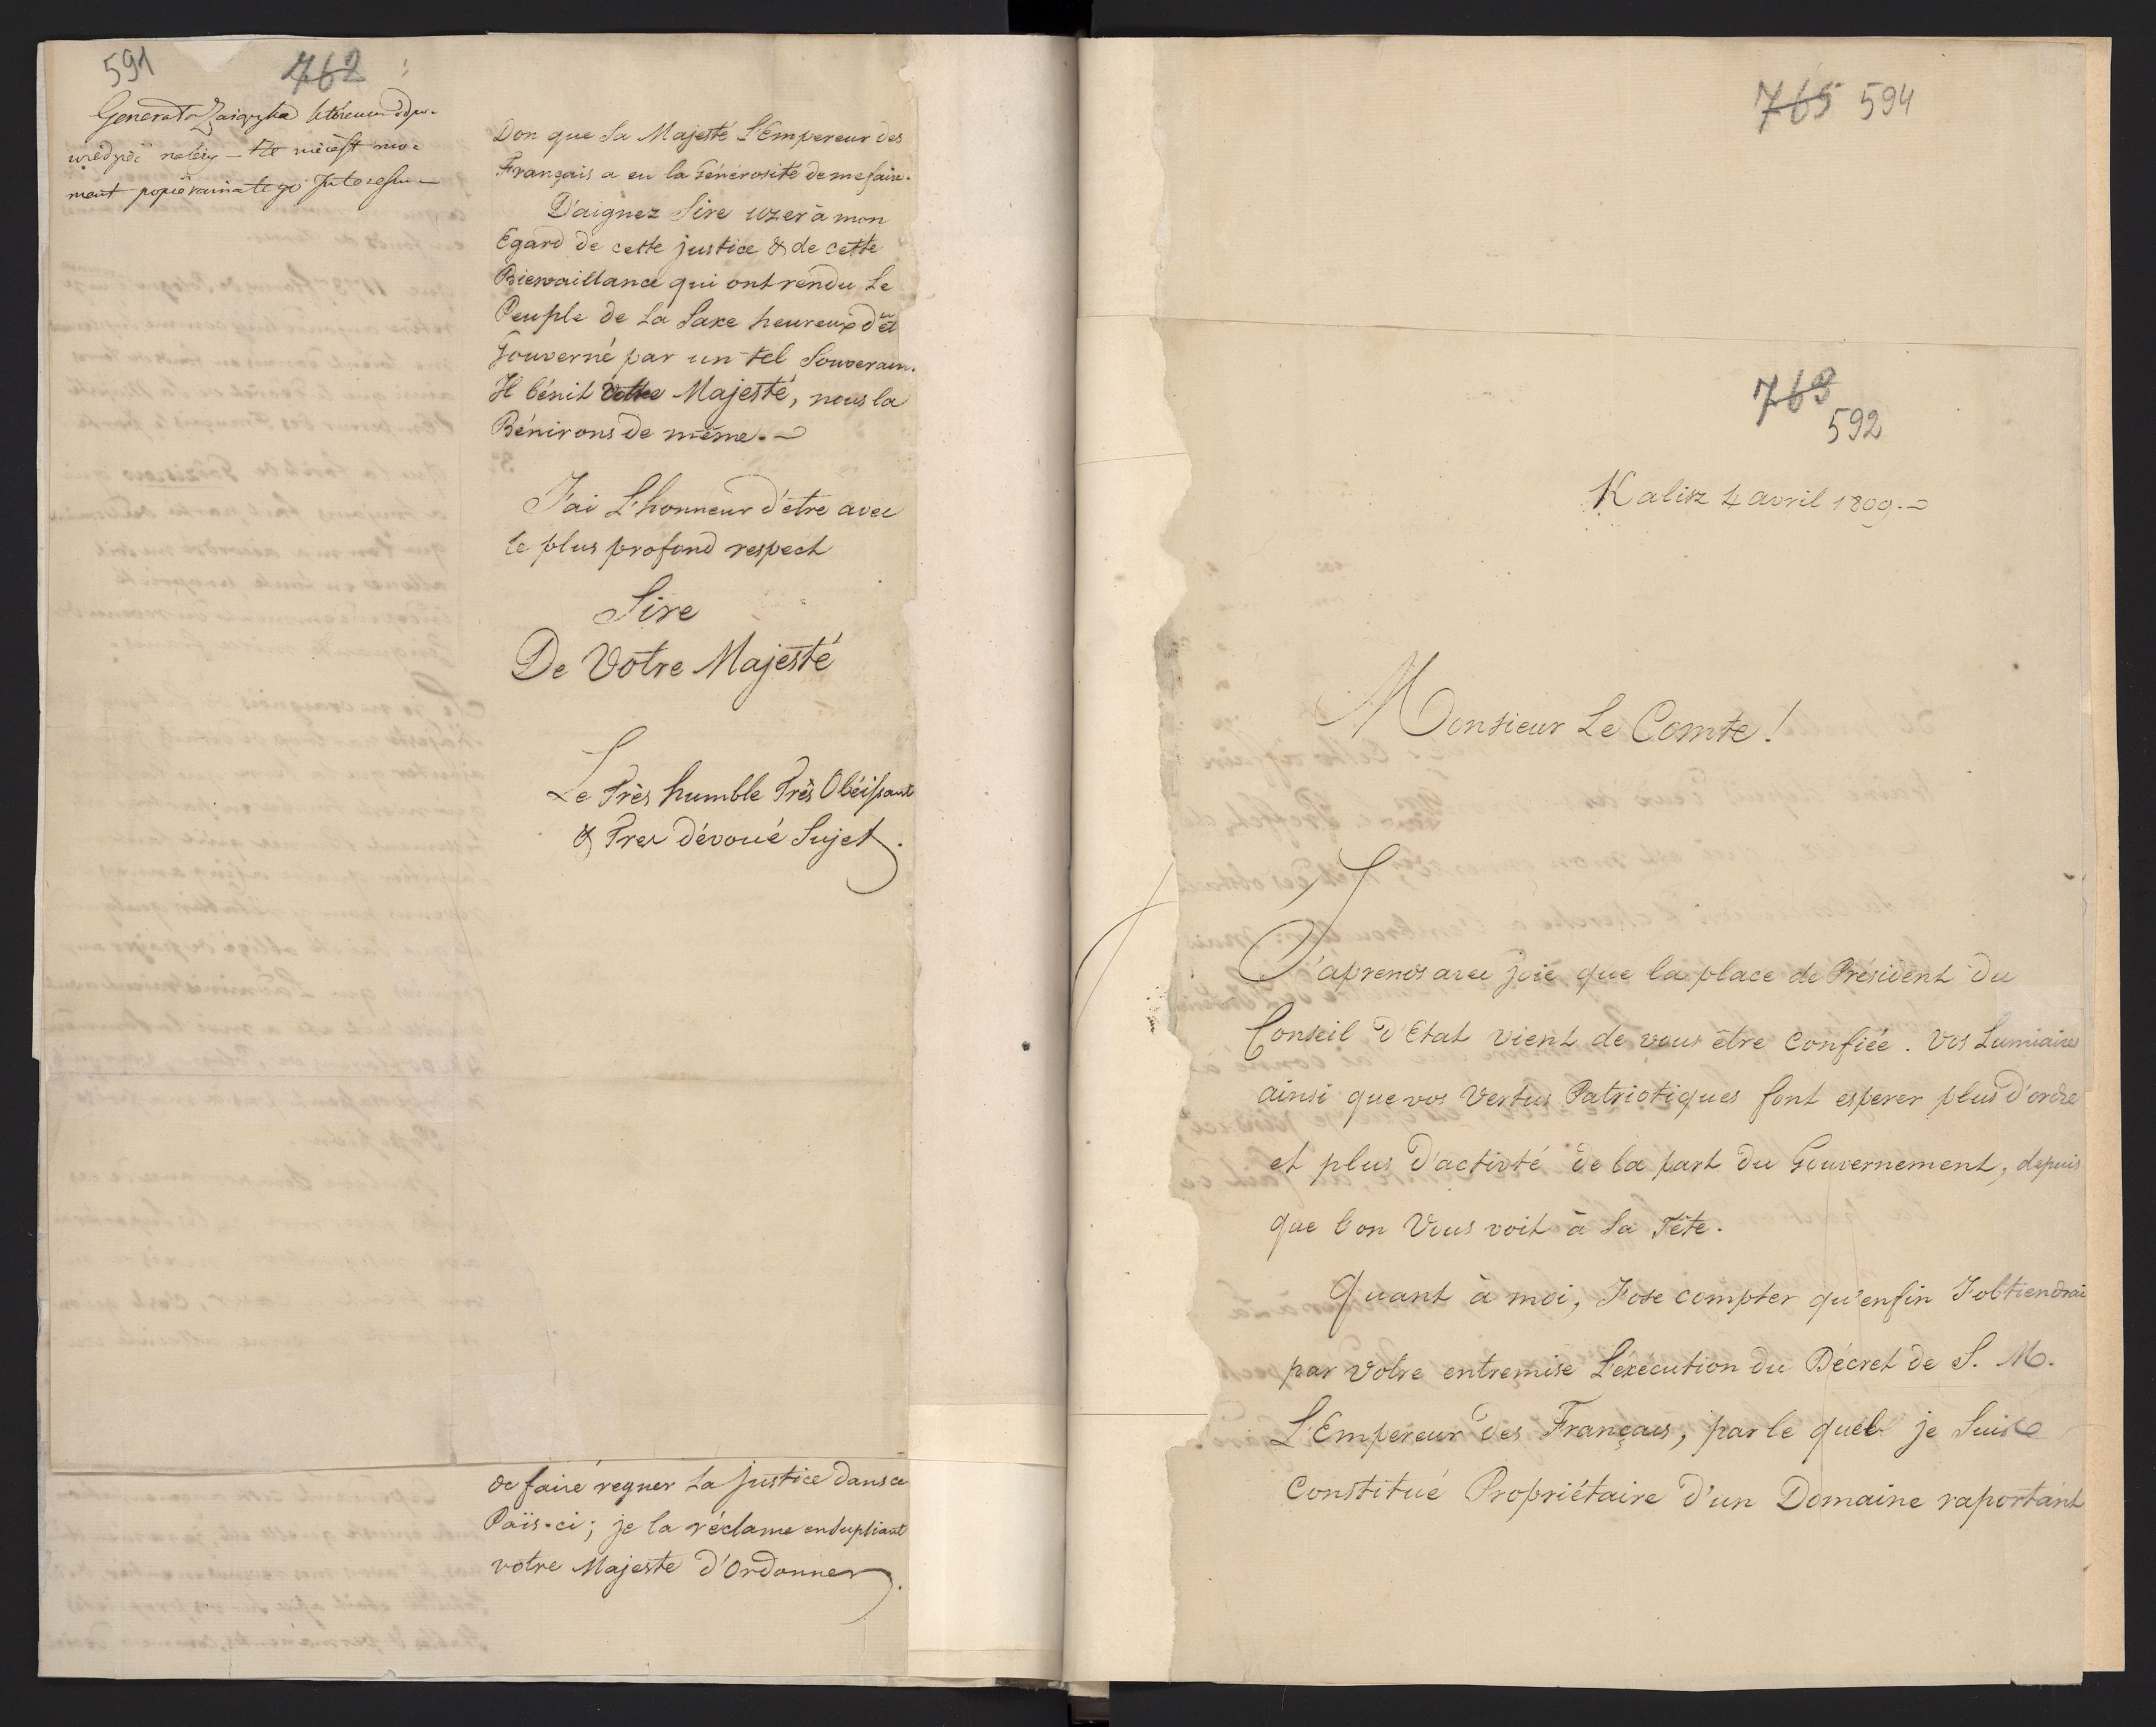 591
762
Generała Zaiączka któremu odpo-
wiedzieć należy — że nieiest mo-
ment popierania tego Interessu —
Don que Sa Majesté L'Empereur des
Français a eu la Générosité de me faire.
D'aignez Sire uzer à mon
Egard de cette justice & de cette
Bienvaillance qui ont rendu Le
Peuple de La Saxe heureux d'et
Gouverné par un tel Souverain.
Il bénit Votre Majesté, nous la
Bénirons de même. —
J'ai L'honneur d'être avec
le plus profond respect
Sire
De Votre Majesté
Le Très humble Très Obéissant
& Tres dévoué Sujet.
de faire regner La justice dans ce
Païs-ci; je la réclame en supliant
votre Majeste d'Ordonner.
765 594
763
592
Kalisz 4 avril 1809. —
Monsieur Le Comte!
J'aprends avec joie que la place de Président du
Conseil d'Etat vient de vous être confiée. Vos Lumiaires
ainsi que vos Vertus Patriotiques font esperer plus d'ordre
et plus d'activté de la part du Gouvernement, depuis
que l'on Vous voit à Sa Tête.
Quant à moi, J'ose compter qu'enfin J'obtiendrai
par Votre entremise L'exécution du Décret de S. M.
L'Empereur des Français, par le quel je Suis
Constitué Propriétaire d'un Domaine raportant